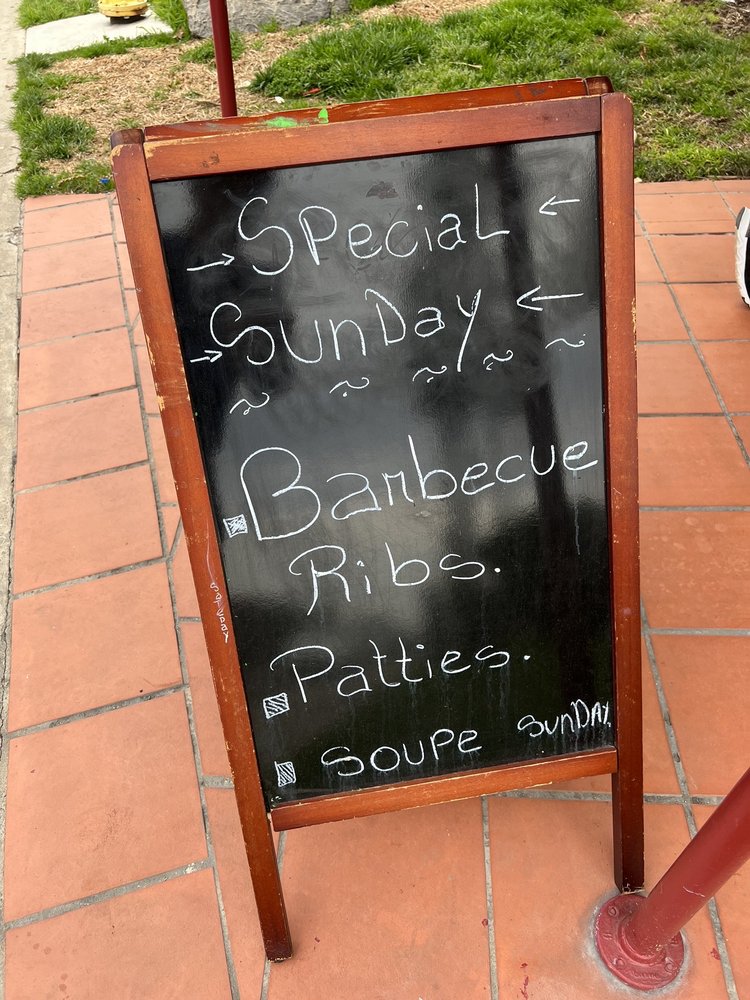 → Special ←
→ SunDay ←
~ ~ ~ ~ ~
Barbecue
Ribs.
Patties.
Soupe SunDAY